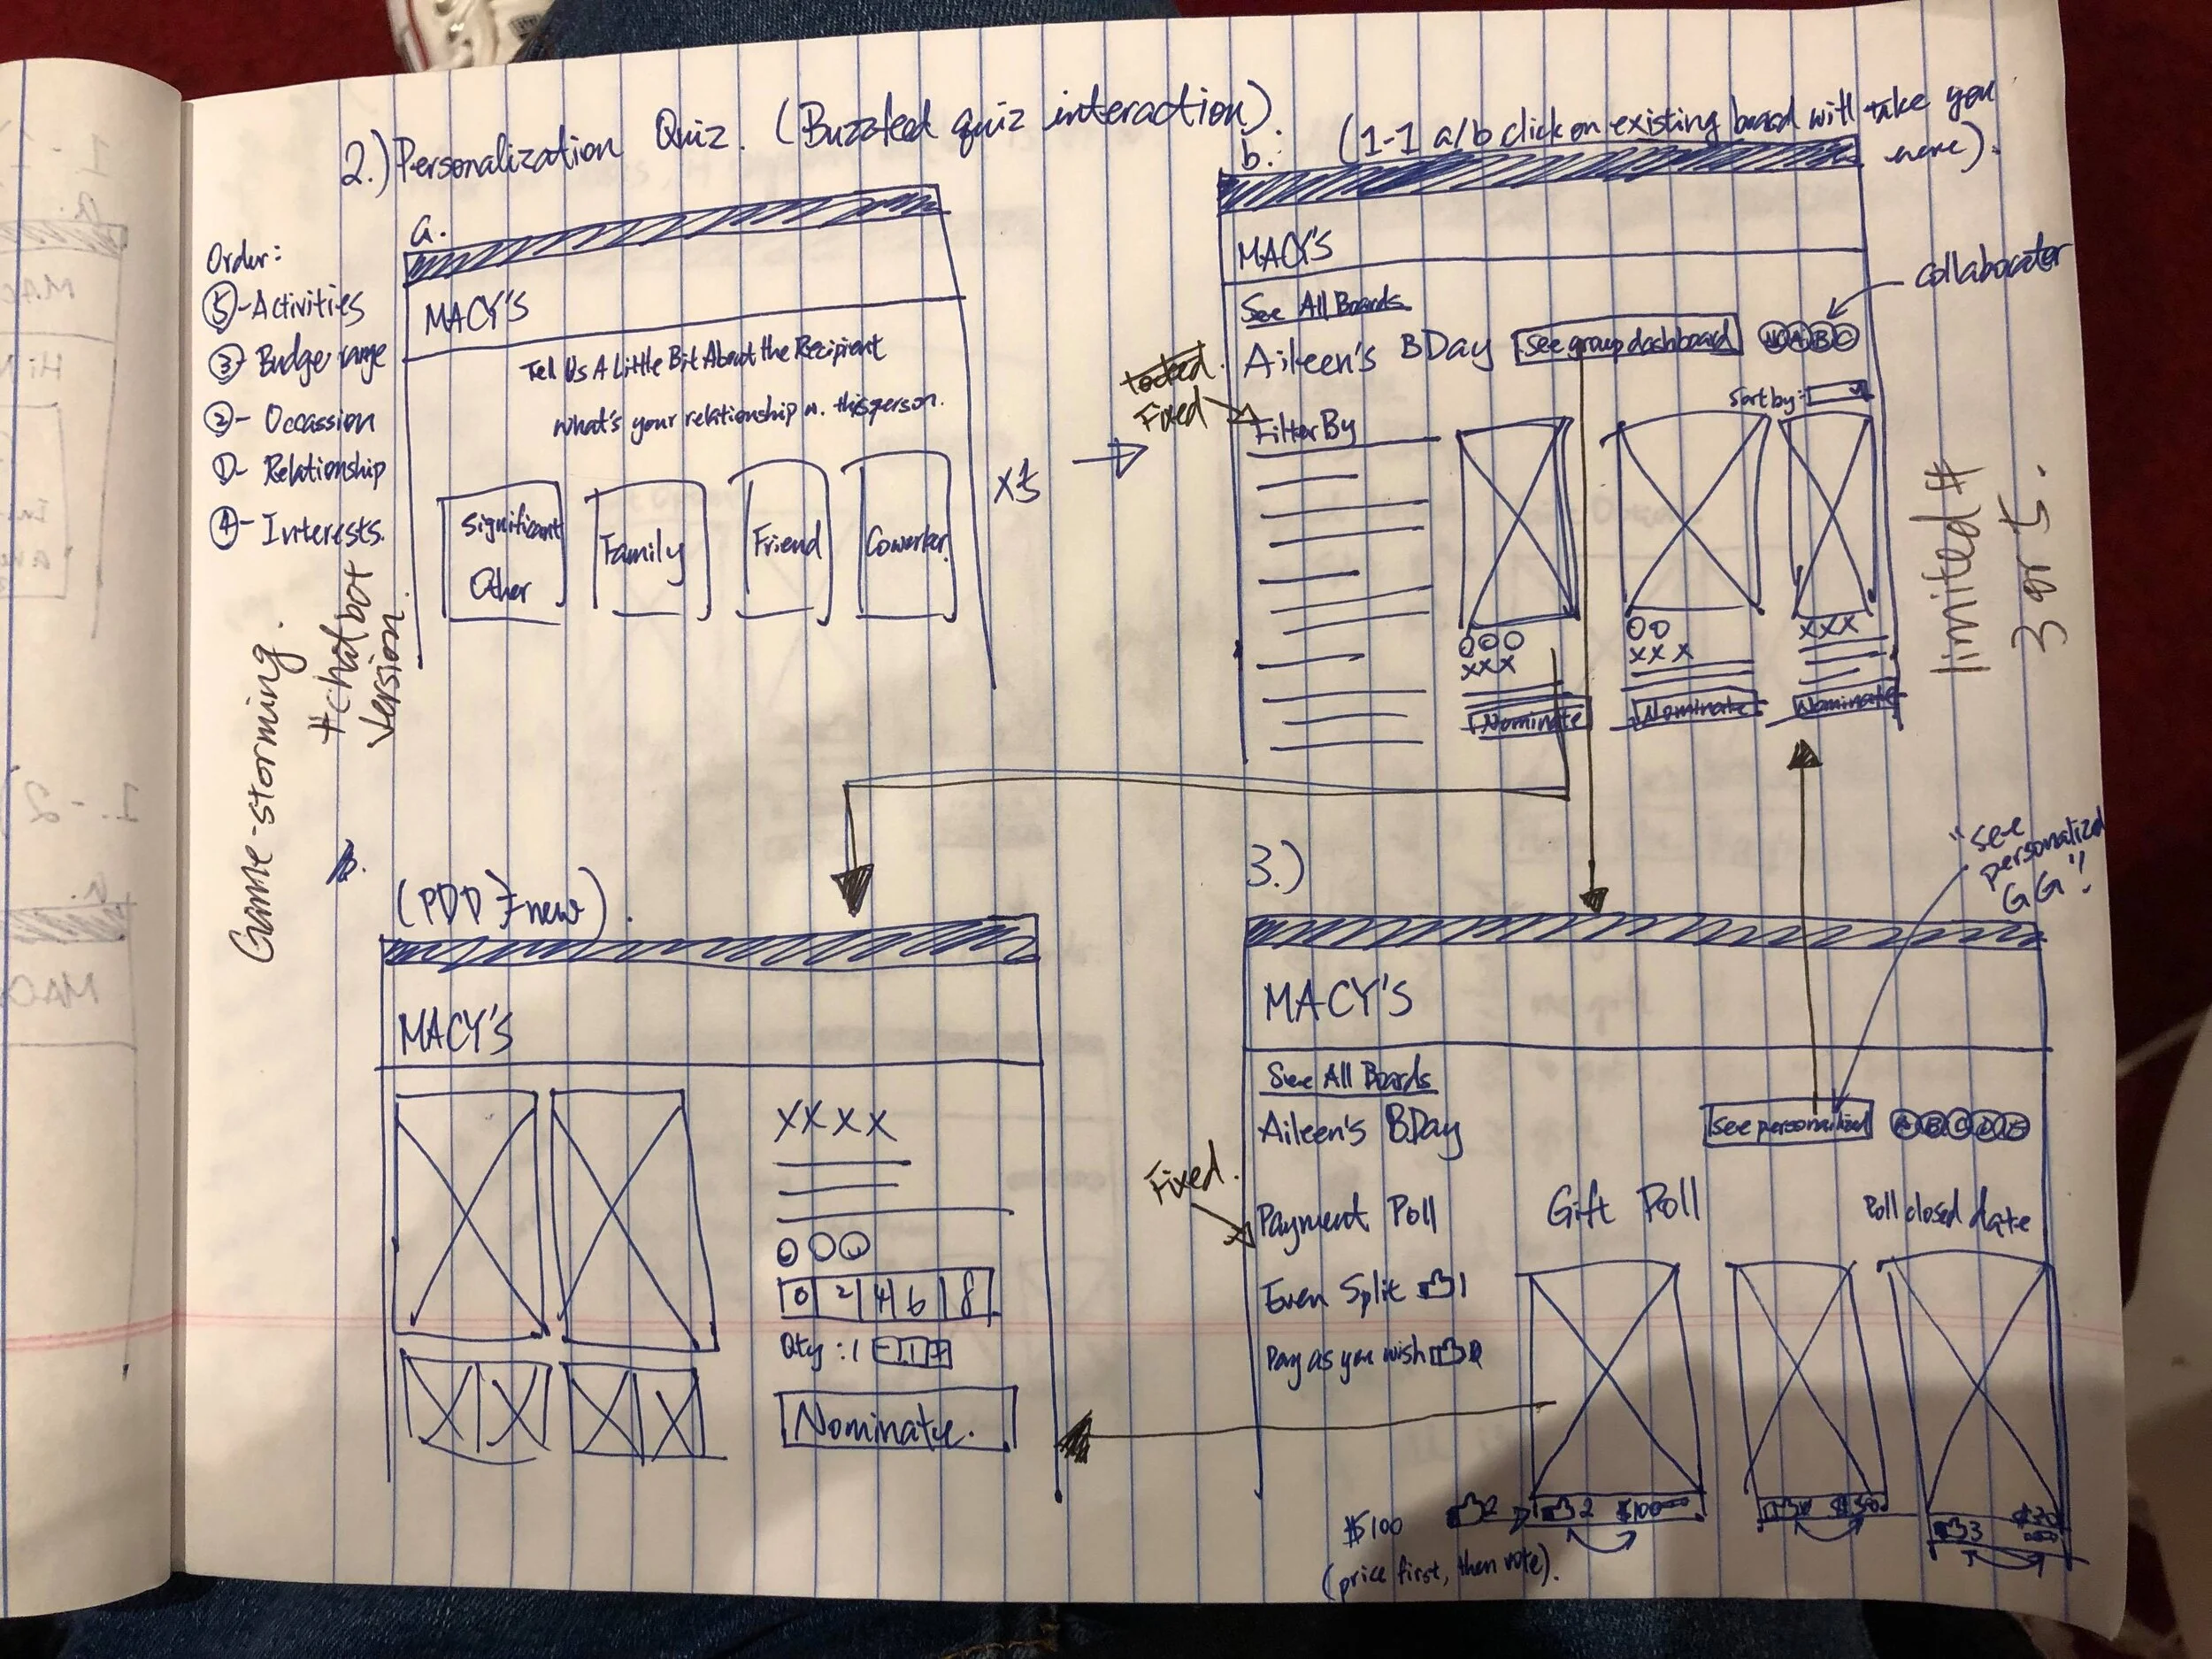 2.) Personalization Quiz. (Buzzfeed quiz interaction).
a.
Order:
⑤-Activities
③- Budge range
②- Occassion
①- Relationship
④- Interests.
+ chatbot
version.
Game-storming.
MACY'S
Tell Us A Little Bit About the Recipient
What's your relationship w. this person.
Significant
Other
Family
Friend
Coworker
x5
b. (1-1 a/b click on existing board will take you
here).
MACY'S
See All Boards
Aileen's BDay
See group dashboard
A B C
collaborator
Sort by:
Locked.
Fixed
Filter By
OOO
XXX
Nominate
OO
XXX
Nominate
XXX
Nominate
limited #
3 or 5.
b.
(PDP → new).
MACY'S
XXXX
OOO
0 2 4 6 8
Qty : 1 - 1 +
Nominate.
3.)
"see
personalized
GG"!
MACY'S
See All Boards
Aileen's BDay
See personalized
A B C D E
Fixed.
Payment Poll
Gift Poll
Poll closed date
Even Split 1
Pay as you wish
2 $100
3
$100 2
(price first, then vote).